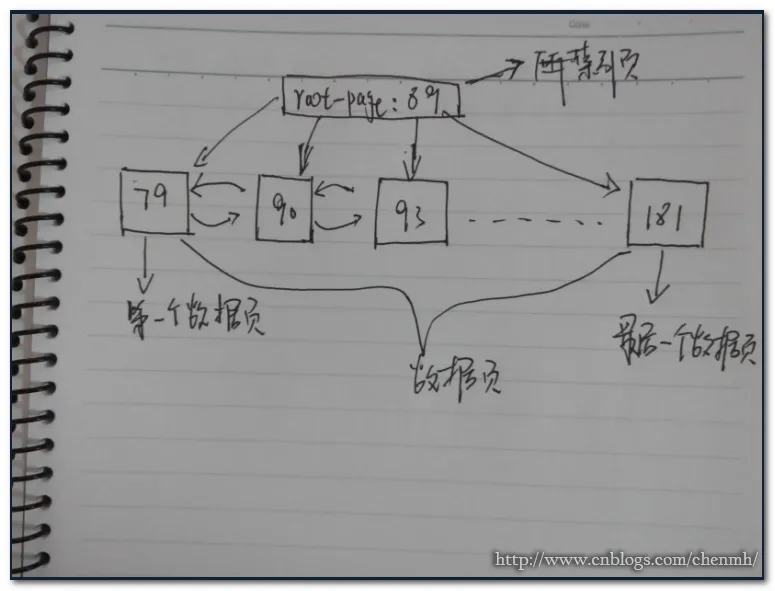 root-page: 89
索引页
79
90
93
181
第一个数据页
最后一个数据页
数据页
http://www.cnblogs.com/chenmh/